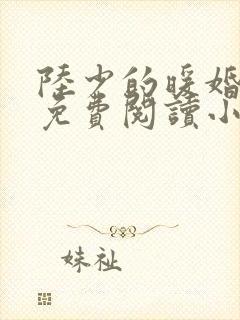 陸少的暖婚
免費閱讀小
妹祉